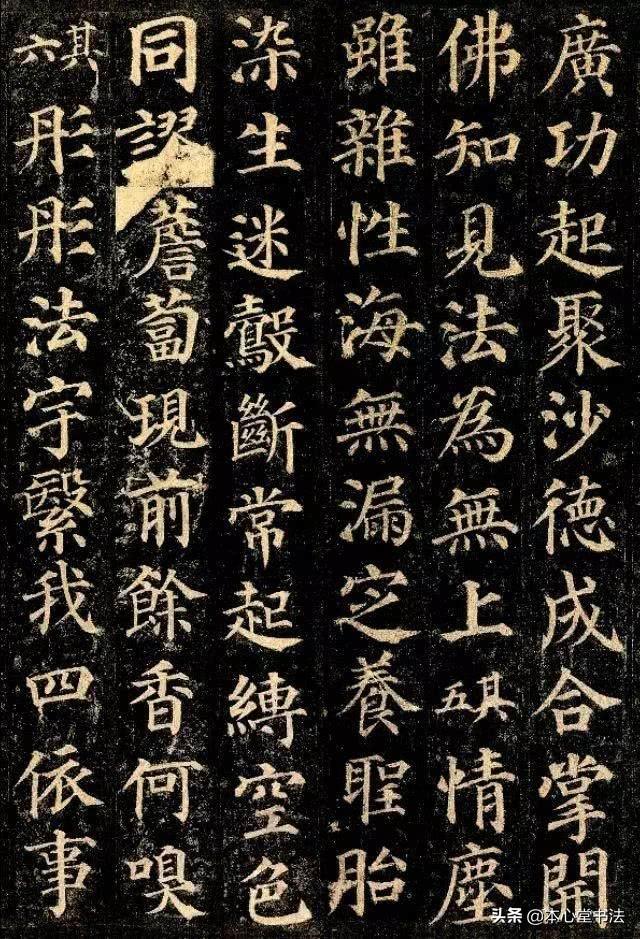 廣功起聚沙德成合掌開
佛知見法為無上其五情塵
雖雜性海無漏定養聖胎
染生迷鷇斷常起縛空色
同謬薝蔔現前餘香何嗅
其六彤彤法宇繫我四依事
头条 @本心堂书法